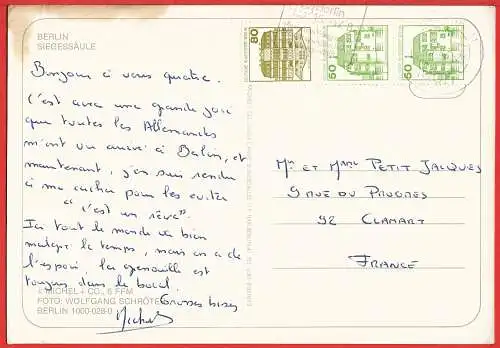 BERLIN
SIEGESSÄULE
Bonjour à vous quatre.
C'est avec une grande joie
que toutes les Allemandes
m'ont vu arrivé à Berlin, et
maintenant, j'en suis rendu
à me cacher pour les éviter
"c'est un rêve".
Ici tout le monde va bien
malgré le temps, mais on a de
l'espoir, la grenouille est
toujours dans le bocal.
Grosses bises
Michel
© MICHEL + CO., 6 FFM
FOTO: WOLFGANG SCHRÖTER
BERLIN 1000-028-0
80
60
60
Mr ET Mme PETIT JACQUES
9 RUE DU PROGRES
92 CLAMART
FRANCE